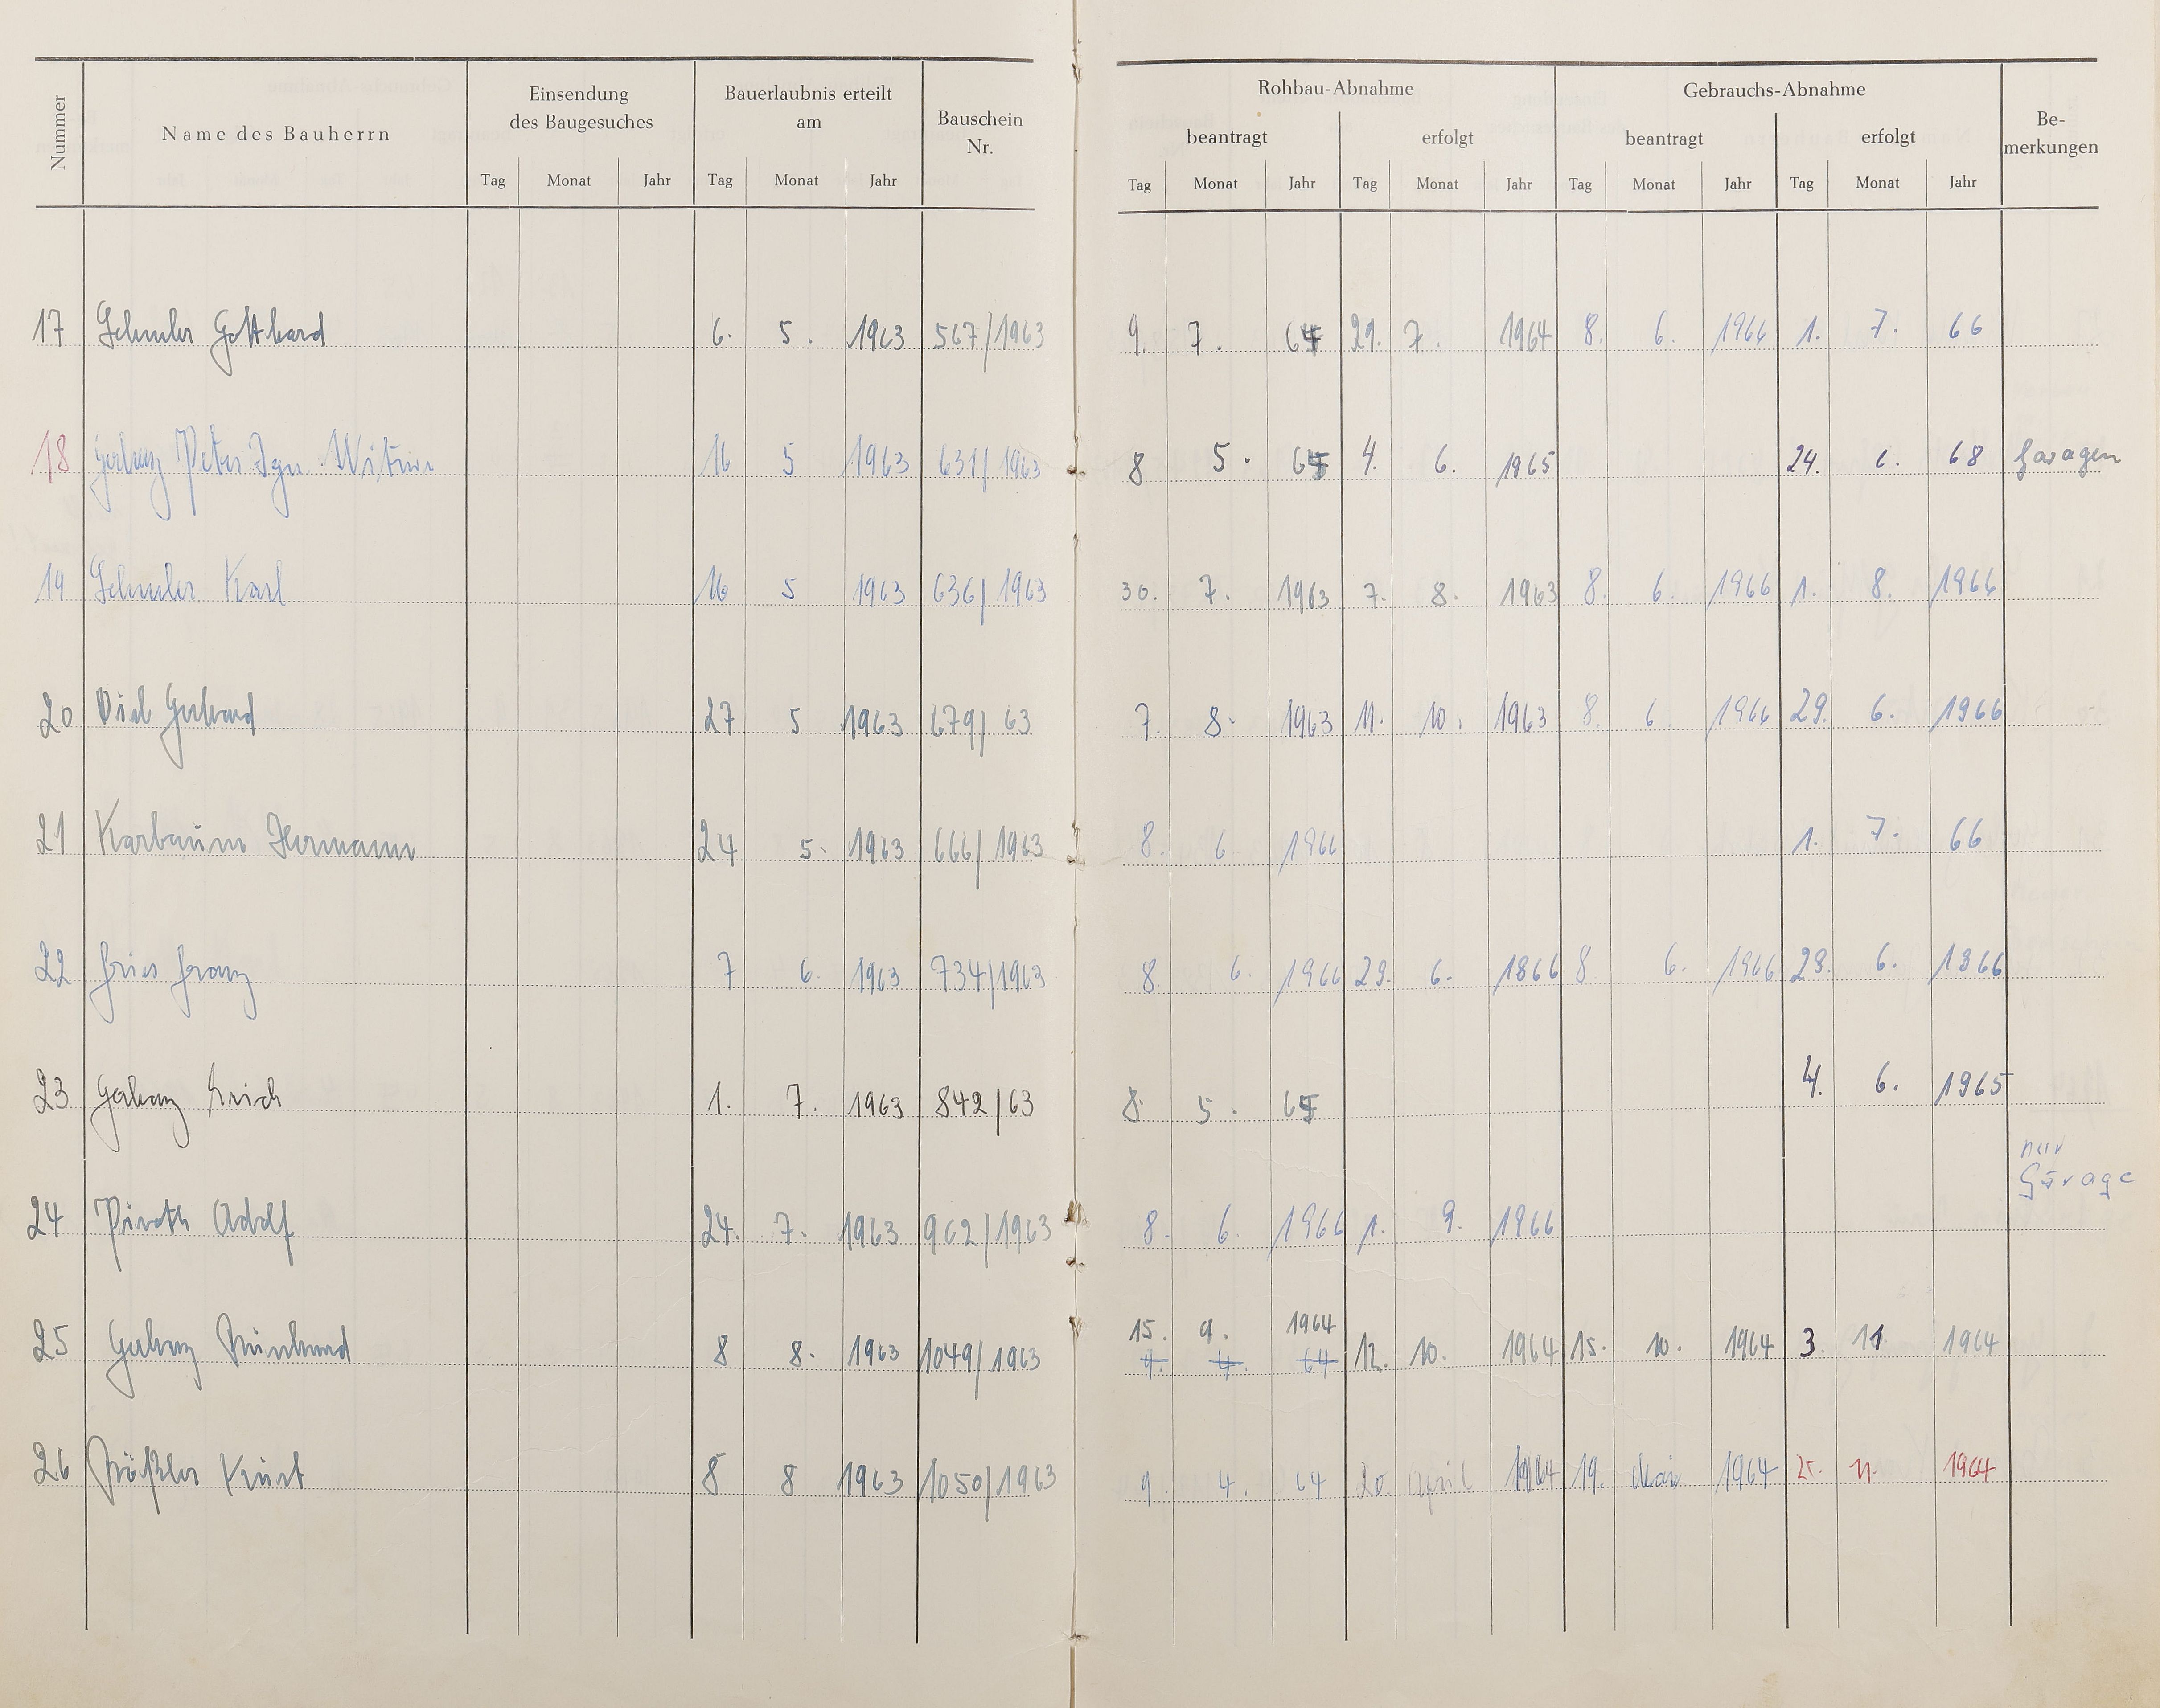 Nummer Name des Bauherrn Einsendung des Baugesuches Bauerlaubnis erteilt am Bauschein Nr. Rohbau-Abnahme Gebrauchs-Abnahme Be-merkungen
beantragt erfolgt beantragt erfolgt
Tag Monat Jahr Tag Monat Jahr Tag Monat Jahr Tag Monat Jahr Tag Monat Jahr Tag Monat Jahr
17 Gotthard 6. 5. 1963 567/1963 9. 7. 64 29. 7. 1964 8. 6. 1966 1. 7. 66
18 Peter Witwe 16 5 1963 631/1963 8 5. 65 4. 6. 1965 24. 6. 68 Garagen
19 Karl 16 5 1963 636/1963 30. 7. 1963 7. 8. 1963 8. 6. 1966 1. 8. 1966
20 Gerhard 27 5 1963 679/63 7. 8. 1963 11. 10. 1963 8. 6. 1966 29. 6. 1966
21 Karbaum Hermann 24 5. 1963 666/1963 8. 6 1966 1. 7. 66
22 Fries Franz 7 6. 1963 734/1963 8 6. 1966 29. 6. 1866 8 6. 1966 29. 6. 1966
23 Erich 1. 7. 1963 842/63 8. 5. 65 4. 6. 1965
nur
Garage
24 Piroth Adolf 24. 7. 1963 962/1963 8. 6. 1966 1. 9. 1966
15. 9. 1964
25 Reinhard 8 8. 1963 1049/1963 9. 4. 64 12. 10. 1964 15. 10. 1964 3. 11 1964
26 Kurt 8 8 1963 1050/1963 9. 4. 64 20. April 1964 19. Mai 1964 25. 11. 1964